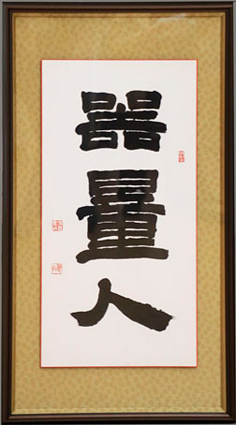 器量人